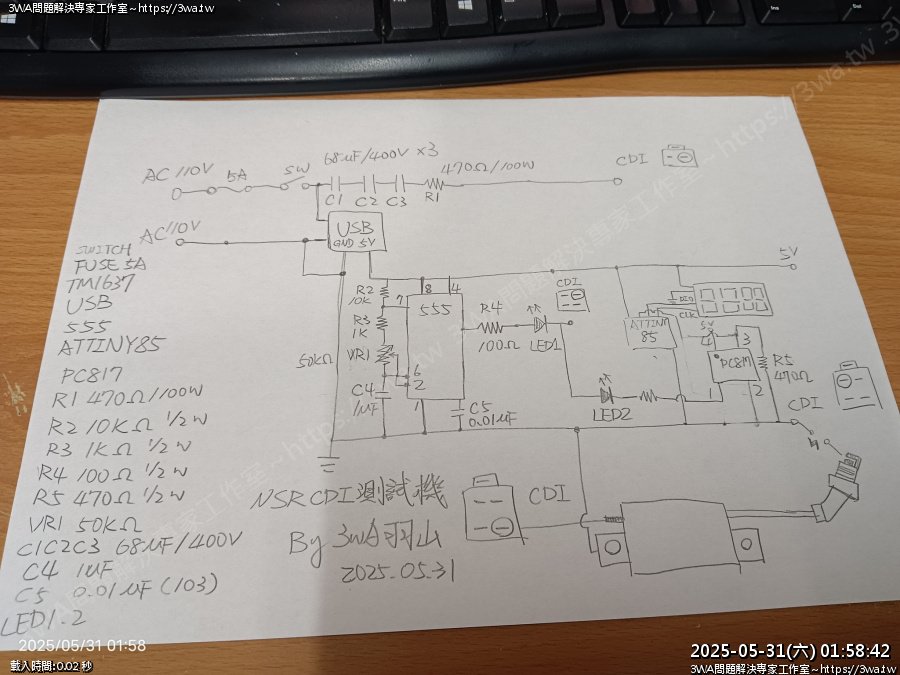 3WA問題解決專家工作室~https://3wa.tw
3WA問題解決專家工作室~https://3wa.tw
AC 110V
5A
SW
68uF/400V ×3
470Ω/100W
CDI
C1 C2 C3 R1
AC110V
USB
GND 5V
5V
SWITCH
FUSE 5A
TM1637
USB
555
ATTINY85
PC817
R1 470Ω/100W
R2 10KΩ 1/2W
R3 1KΩ 1/2W
R4 100Ω 1/2W
R5 470Ω 1/2W
VR1 50KΩ
C1C2C3 68uF/400V
C4 1uF
C5 0.01uF (103)
LED1.2
R2
10K
7
8
4
555
R3
1K
50KΩ
VR1
6
2
C4
1uF
1
C5
0.01uF
R4
100Ω
LED1
CDI
LED2
ATTINY
85
DIO
CLK
5V
4
3
PC817
1
2
R5
470Ω
CDI
NSR CDI測試機
By 3WA羽山
2025.05.31
CDI
2025/05/31 01:58
載入時間:0.02 秒
2025-05-31(六) 01:58:42
3WA問題解決專家工作室~https://3wa.tw